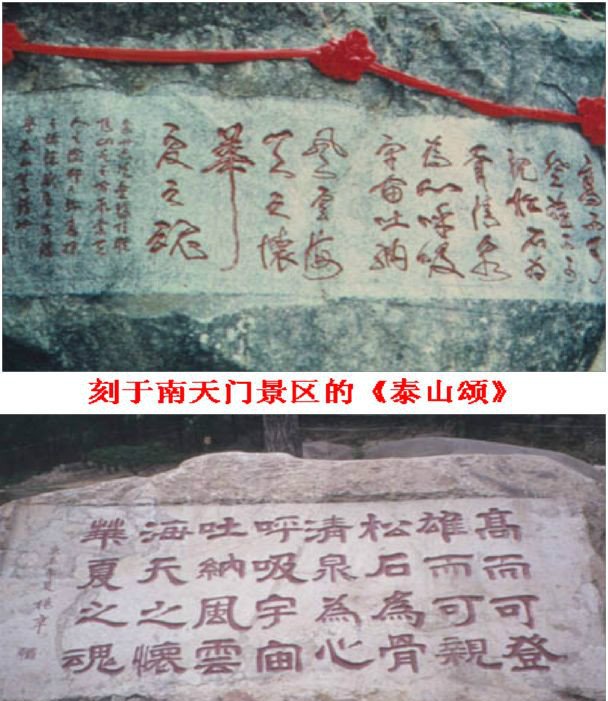 高而可
登雄而可
親松石为
骨清泉
为心呼吸
宇宙吐納
風雲海
天之懷
華
夏之魂
刻于南天门景区的《泰山颂》
高而可登
雄而可親
松石為骨
清泉為心
呼吸宇宙
吐納風雲
海天之懷
華夏之魂